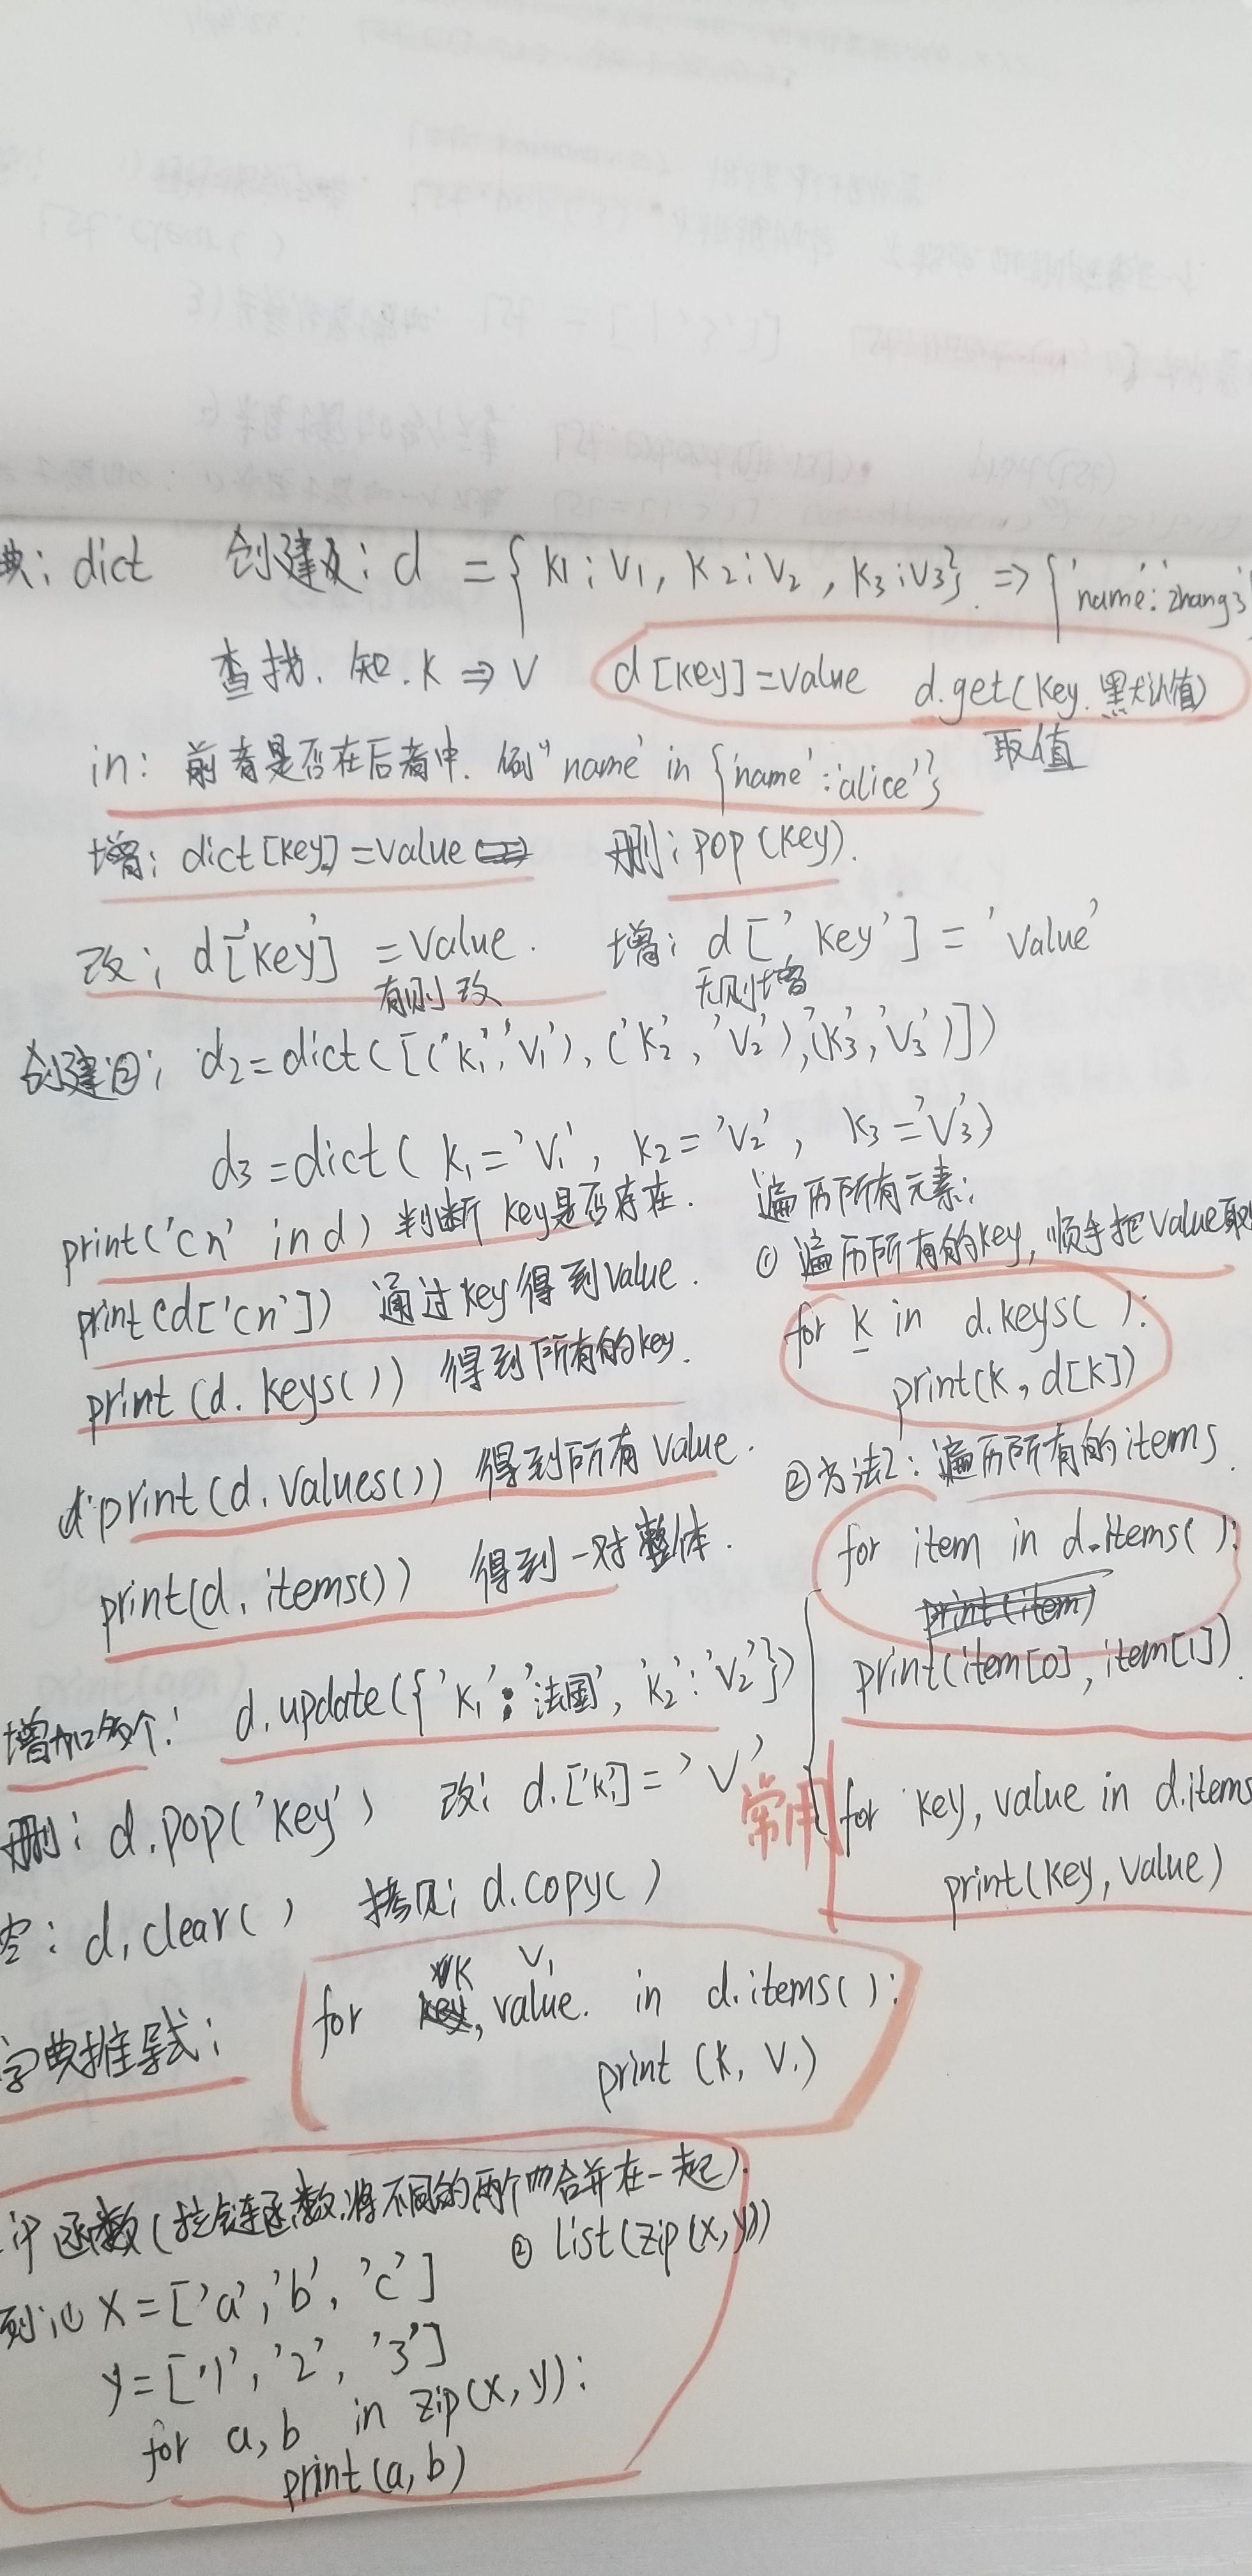 典: dict 创建: d = {k1:v1, k2:v2, k3:v3} => {'name':'zhang3'
查找. 知.k => v d[key]=value d.get(key.默认值)
取值
in: 前者是否在后者中. 例 'name' in {'name':'alice'}
增: dict[key]=value 删: pop(key).
改: d['key'] = value. 增: d['key'] = 'value'
有则改 无则增
创建②: d2=dict([('k1','v1'),('k2','v2'),('k3','v3')])
d3=dict(k1='v1', k2='v2', k3='v3')
print('cn' in d) 判断key是否存在.
print(d['cn']) 通过key得到value.
print(d.keys()) 得到所有的key.
print(d.values()) 得到所有value.
print(d.items()) 得到一对整体.
遍历所有元素:
① 遍历所有的key, 顺手把value取
for k in d.keys():
print(k, d[k])
②方法2: 遍历所有的items.
for item in d.items():
print(item)
print(item[0], item[1]).
常用
for key, value in d.items
print(key, value)
增加多个: d.update({'k1':'法国', 'k2':'v2'})
删: d.pop('key') 改: d.['k']='v'
空: d.clear() 拷贝: d.copy()
字典推导式:
k v,
for key, value. in d.items():
print (k, v.)
ip函数(拉链函数,将不同的两个 合并在一起).
例: ① x=['a','b','c'] ② list(zip(x,y))
y=['1','2','3']
for a,b in zip(x,y):
print(a,b)